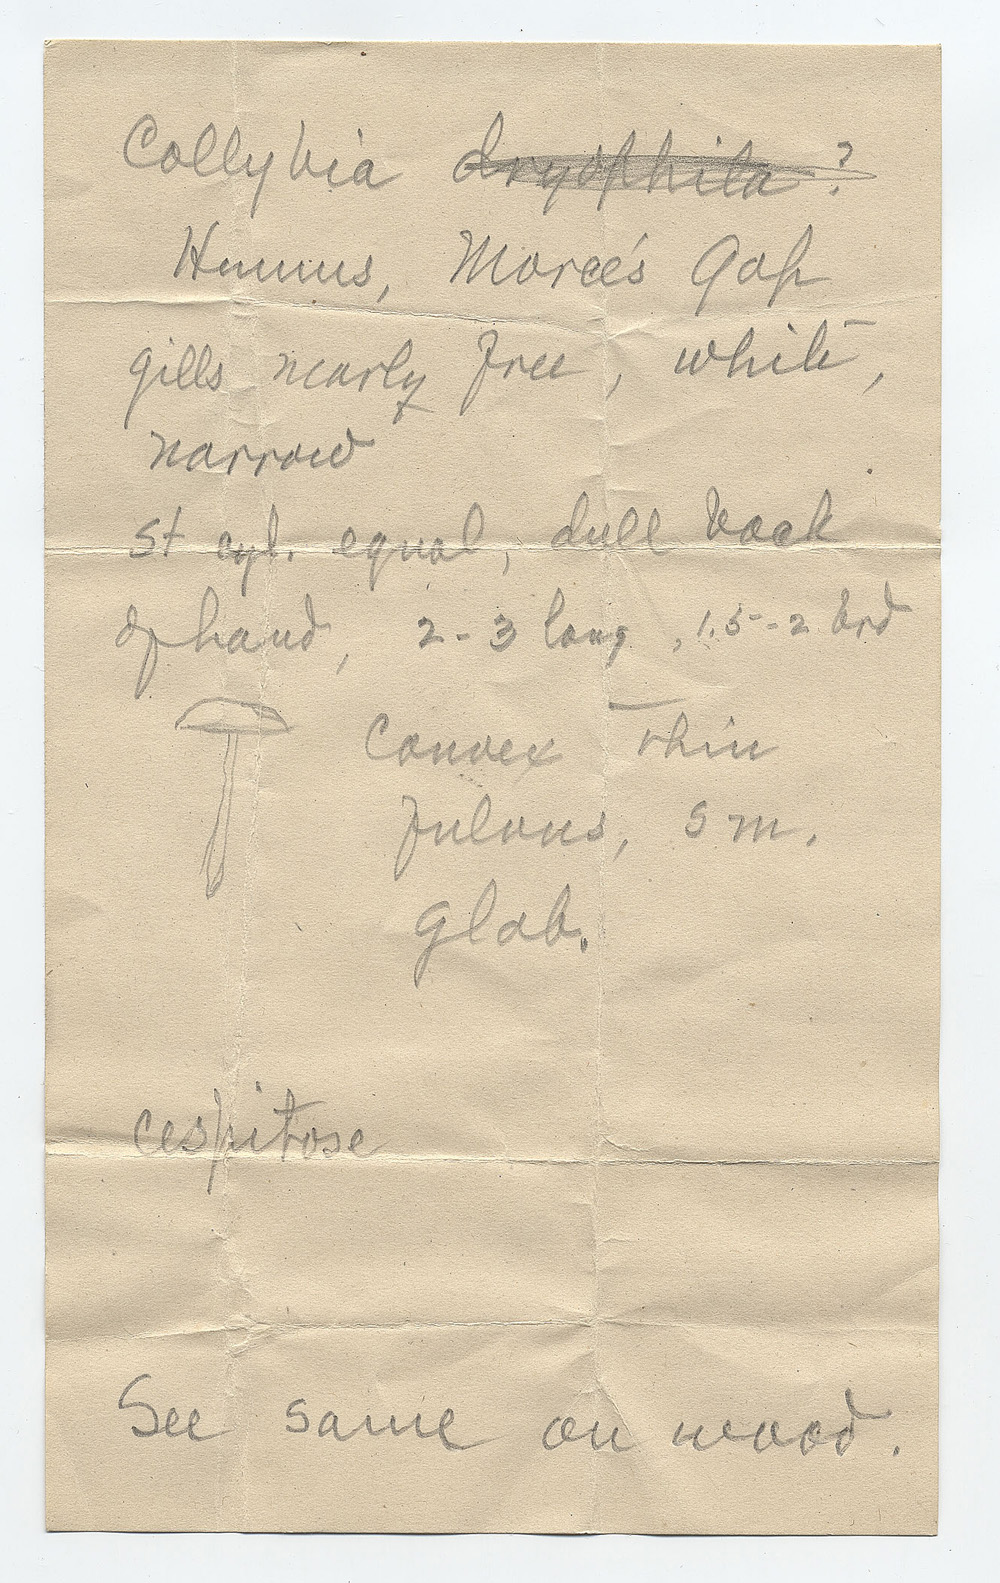 Collybia dryophila ?
Humus, Morce's Gap
gills nearly free, white,
narrow
St cyl. equal, dull back
of hand, 2-3 long, 1.5-2 brd
Convex Thin
fulvus, 5 m.
glab.
cespitose
See same on wood.